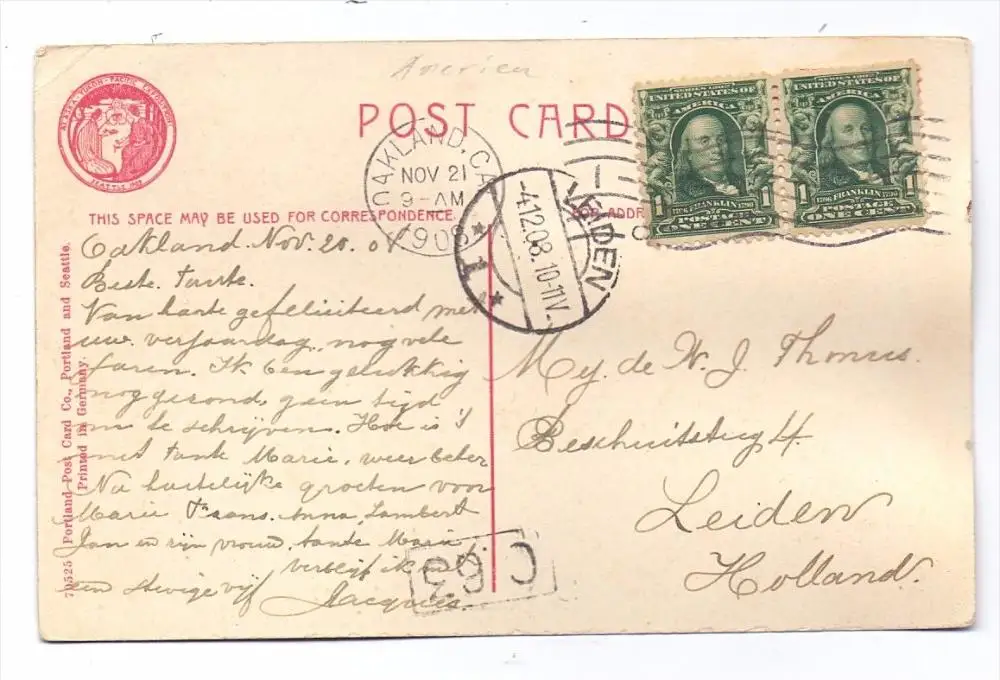 America
ALASKA-YUKON-PACIFIC EXPOSITION
SEATTLE 1909
POST CARD
SERIES 1902
UNITED STATES OF
AMERICA
1 1
1706 FRANKLIN 1790
POSTAGE
ONE CENT
SERIES 1902
UNITED STATES OF
AMERICA
1 1
1706 FRANKLIN 1790
POSTAGE
ONE CENT
OAKLAND, CA
NOV 21
9-AM
1908
LEIDEN
4.12.08.10-11V.
* 1 *
THIS SPACE MAY BE USED FOR CORRESPONDENCE.
FOR ADDR
Oakland. Nov. 20. 08
Beste. Tante.
Van harte gefeliciteerd met
uw. verjaardag, nog vele
Jaren. Ik ben gelukkig
nog gezond, geen tijd
om te schrijven. Hoe is 't
met tante Marie, weer beter
Nu hartelijke groeten voor
Marie Frans. Anna, Lambert
Jan en zijn vrouw, tante Marie
verblijf ik met
een stevige vijf Jacques.
Mej. de W. J. Thomas.
Beschuitsteeg 4.
Leiden
Holland.
C 63
70525 Portland Post Card Co., Portland and Seattle.
Printed in Germany.